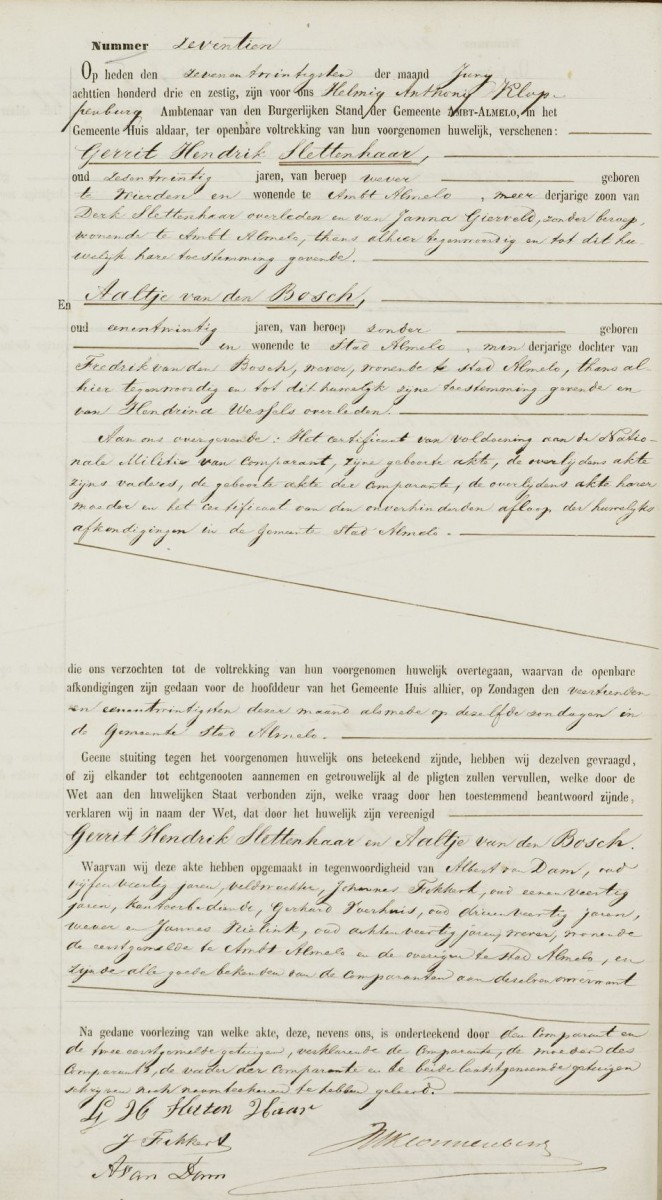 Nummer zeventien
Op heden den zevenentwintigsten der maand Juny
achttien honderd drie en zestig, zijn voor ons Helmig Anthony Klop-
penburg Ambtenaar van den Burgerlijken Stand der Gemeente AMBT-ALMELO, in het
Gemeente Huis aldaar, ter openbare voltrekking van hun voorgenomen huwelijk, verschenen:
Gerrit Hendrik Slettenhaar,
oud zesentwintig jaren, van beroep wever geboren
te Wierden en wonende te Ambt Almelo, meer derjarige zoon van
Derk Slettenhaar overleden en van Janna Gierveld, zonder beroep,
wonende te Ambt Almelo, thans alhier tegenwoordig en tot dit hu-
welijk hare toestemming gevende.
En Aaltje van den Bosch,
oud eenentwintig jaren, van beroep zonder geboren
en wonende te Stad Almelo, min derjarige dochter van
Fredrik van den Bosch, wever, wonende te stad Almelo, thans al-
hier tegenwoordig en tot dit huwelijk zijne toestemming gevende en
van Hendrina Wessels overleden.
Aan ons overgevende: Het certificaat van voldoening aan de Natio-
nale Militie van Comparant, zijne geboorte akte, de overlijdens akte
zijns vaders, de geboorte akte der Comparante, de overlijdens akte harer
moeder en het certificaat van den onverhinderden afloop der huwelijks
afkondigingen in de Gemeente Stad Almelo.
die ons verzochten tot de voltrekking van hun voorgenomen huwelijk overtegaan, waarvan de openbare
afkondigingen zijn gedaan voor de hoofddeur van het Gemeente Huis alhier, op Zondagen den veertienden
en eenentwintigsten dezer maand alsmede op dezelfde zondagen in
de Gemeente Stad Almelo.
Geene stuiting tegen het voorgenomen huwelijk ons beteekend zijnde, hebben wij dezelven gevraagd,
of zij elkander tot echtgenooten aannemen en getrouwelijk al de pligten zullen vervullen, welke door de
Wet aan den huwelijken Staat verbonden zijn, welke vraag door hen toestemmend beantwoord zijnde,
verklaren wij in naam der Wet, dat door het huwelijk zijn vereenigd
Gerrit Hendrik Slettenhaar en Aaltje van den Bosch.
Waarvan wij deze akte hebben opgemaakt in tegenwoordigheid van Albert van Dam, oud
vijfenveertig jaren, veldwachter, Johannes Fekkert, oud eenenveertig
jaren, kantoorbediende, Gerhard Voerhuis, oud drieenveertig jaren,
wever en Jannes Nielink, oud achtenveertig jaren, wever, wonende
de eerstgemelde te Ambt Almelo en de overigen te stad Almelo, en
zijnde alle goede bekenden van de Comparanten aan dezelven onverwant
Na gedane voorlezing van welke akte, deze, nevens ons, is onderteekend door den Comparant en
de twee eerstgemelde getuigen, verklarende de Comparante, de moeder des
Comparants, de vader der Comparante en de beide laatstgenoemde getuigen
schrijven noch naamteekenen te hebben geleerd.
G H Sletten Haar
J Fekkert
A Van Dam